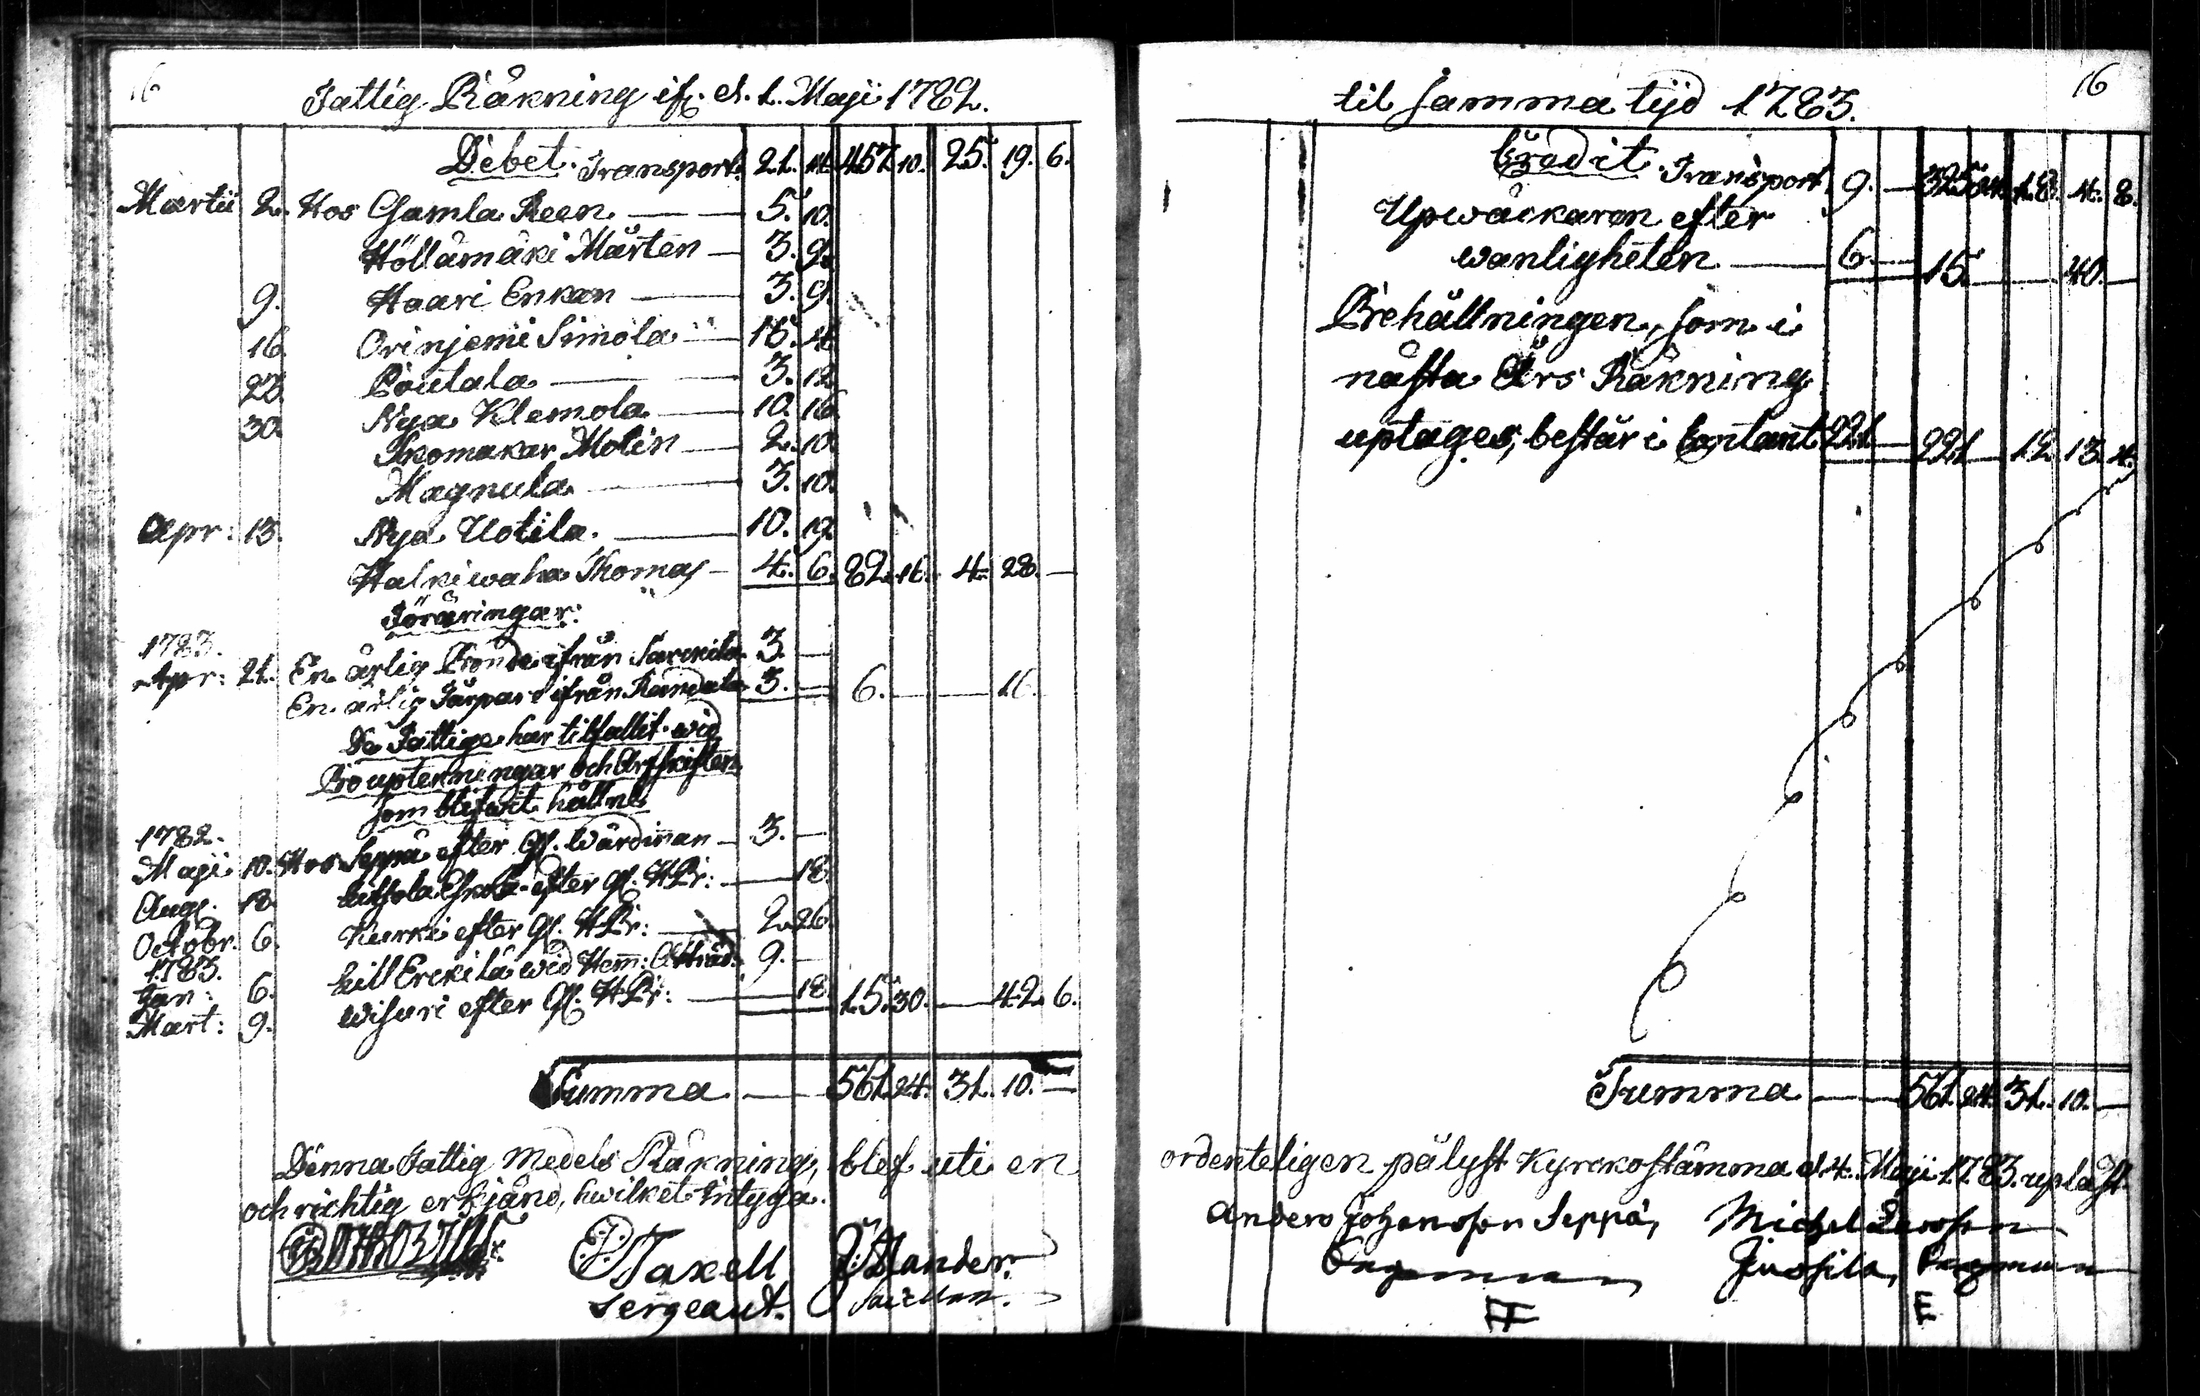 16
Fattig Räkning if. d. 1. Maji 1782.
Debet. Transport. 21. 14. 457. 10. 25. 19. 6.
Martii 2. Hos Gamla Reen — 5. 10.
Höllämäki Mårten — 3. 9.
9. Haari Enkan — 3. 9.
16. Orinjemi Simola — 15. 4.
Poutala — 3. 12.
30. Nya Klemola — 10. 16.
Skomakar Molin — 2. 10.
Magnula — 3. 10.
Apr: 13. Nya Uotila. — 10. 19.
Halkiwaha Thomas — 4. 6. 82. 16. 4. 28. —
Föräringar:
1783.
Apr: 21. En ärlig Bonde ifrån Sarckila 3. —
En ärlig Tårpare ifrån 3. — 6. — — 16.
De Fattige har tilfallit wid
Bouptekningar och Arfskiften
som blifwit hållne
1782.
Maji 10. Hos Seppä efter Gl. Wärdinnan — 3. —
Aug. 18. efter Gl. HBr: — 18.
Octobr. 6. Kurki efter Gl. HBr: — 2. 26.
1783.
Jan: 6. Lill Erckilä wid Hem: 9. —
Mart: 9. Wisuri efter Gl. HBr: — 18. 15. 30. — 42. 6.
Summa — 561. 24. 31. 10. —
Denna Fattig Medels Räkning, blef uti en
och richtig erkjänd, hwilket intyga.
Taxell
Sergeant.
til samma tijd 1783.
16
Credit. Transport. 9. — 325. 24. 18. 4. 8.
Upwäckaren efter
wanligheten — 6. — 15. — 40. —
Behållningen, som i
nästa Års Räkning
uptages, består i Contant 221 — 221 — 12. 13. 4.
Summa — 561. 24. 31. 10. —
ordenteligen pålyst Kyrckostämma d. 4. Maji 1783. upläst
Anders Johansson Seppä, Michel
Juosila,